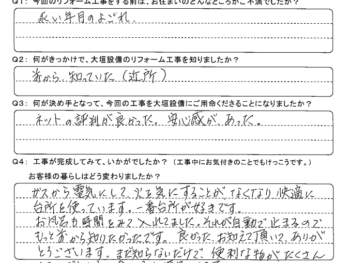 Q1：今回のリフォーム工事をする前は、お住まいのどんなところがご不満でしたか？
永い年月のよごれ。
Q2：何がきっかけで、大垣設備のリフォーム工事を知りましたか？
前から知っていた（近所）
Q3：何が決め手となって、今回の工事を大垣設備にご用命くださることになりましたか？
ネットの評判が良かった。安心感があった。
Q4：工事が完成してみて、いかがでしたか？（工事中にお気付きのことでもけっこうです。）
お客様の暮らしはどう変わりましたか？
ガスから電気にして、火を気にすることがなくなり快適に
台所を使っています。一番台所が好きです。
お風呂も時間をみて入れてました。それが自動で止まるので
もっと前から知りたかったです。良かった。お知えて頂いて、ありが
とうございます。まだ知らないだけで、便利な物がたくさん